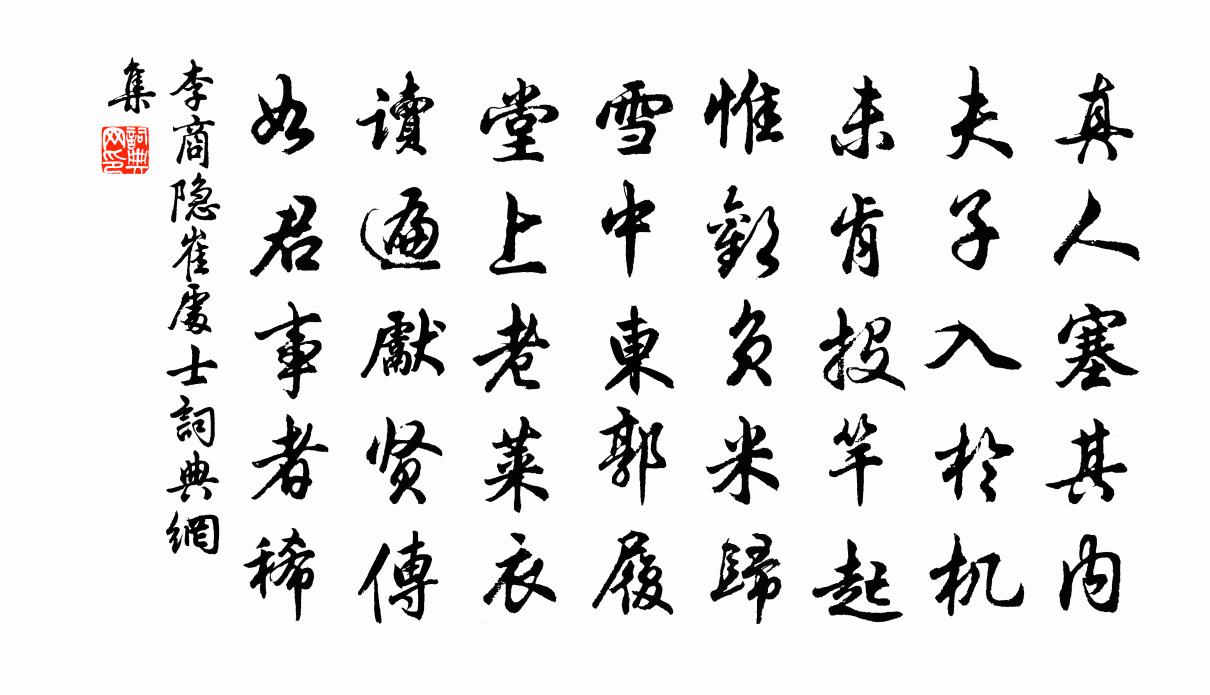 真人塞其内
夫子入於机
未肯投竿起
惟歡负米歸
雪中東郭履
堂上老莱衣
讀遍獻贤傳
如君事者稀
李商隐崔處士詞典網
集
詞典
网印